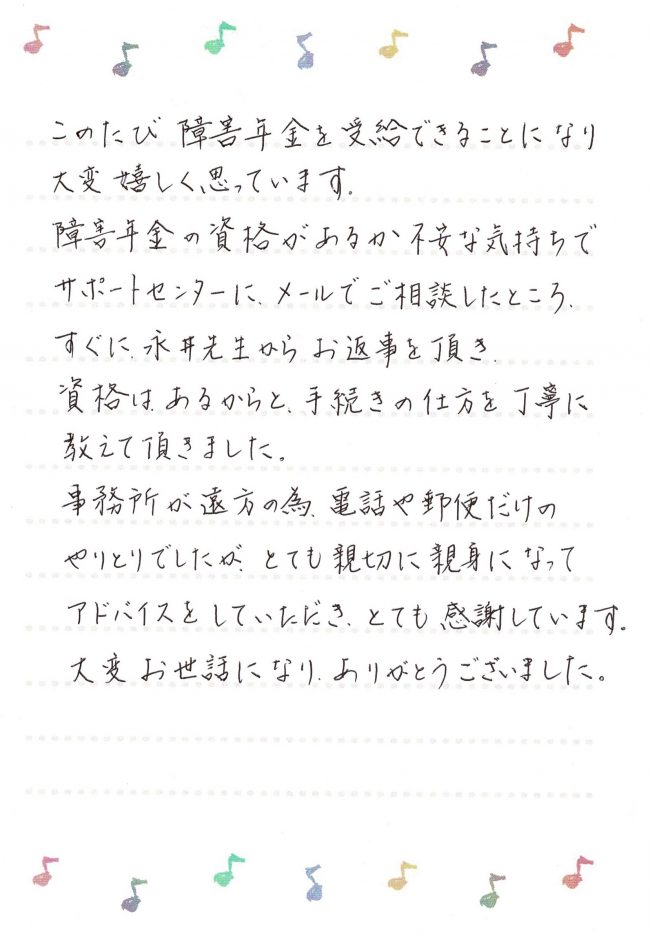 このたび 障害年金を受給できることになり
大変嬉しく思っています。
障害年金の資格があるか、不安な気持ちで
サポートセンターに、メールでご相談したところ、
すぐに、永井先生からお返事を頂き、
資格は、あるからと、手続きの仕方を丁寧に
教えて頂きました。
事務所が遠方の為、電話や郵便だけの
やりとりでしたが、とても親切に親身になって
アドバイスをしていただき、とても感謝しています。
大変お世話になり、ありがとうございました。